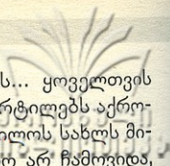 ს... ყოველთვის
რტილებს აქრო-
ილოს სახლს მი-
ო არ ჩამოვიდა,